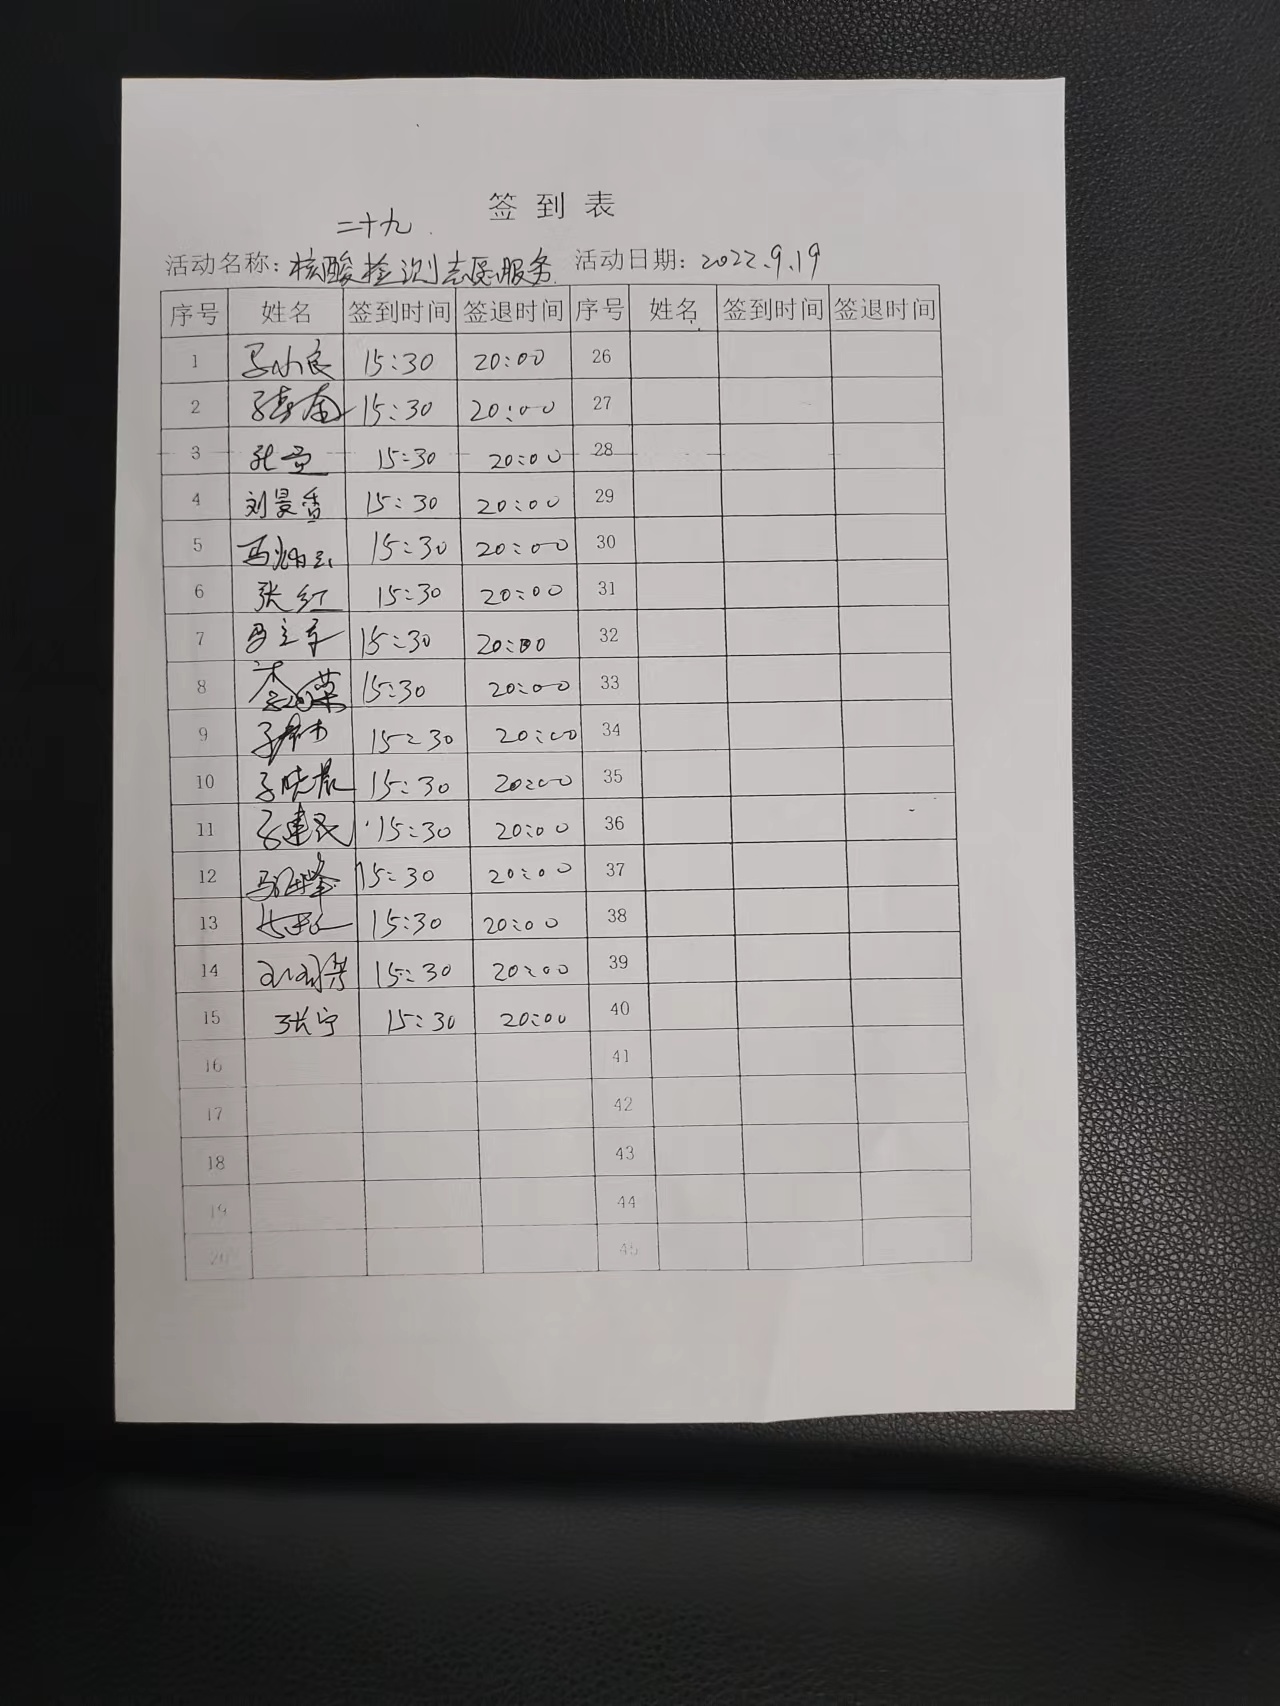 签到表
二十九
活动名称：核酸检测志愿服务 活动日期：2022.9.19
序号 姓名 签到时间 签退时间 序号 姓名 签到时间 签退时间
1 15:30 20:00 26
2 15:30 20:00 27
3 15:30 20:00 28
4 刘景香 15:30 20:00 29
5 15:30 20:00 30
6 张红 15:30 20:00 31
7 马立军 15:30 20:00 32
8 15:30 20:00 33
9 15:30 20:00 34
10 15:30 20:00 35
11 15:30 20:00 36
12 15:30 20:00 37
13 15:30 20:00 38
14 15:30 20:00 39
15 张宁 15:30 20:00 40
16 41
17 42
18 43
19 44
20 45